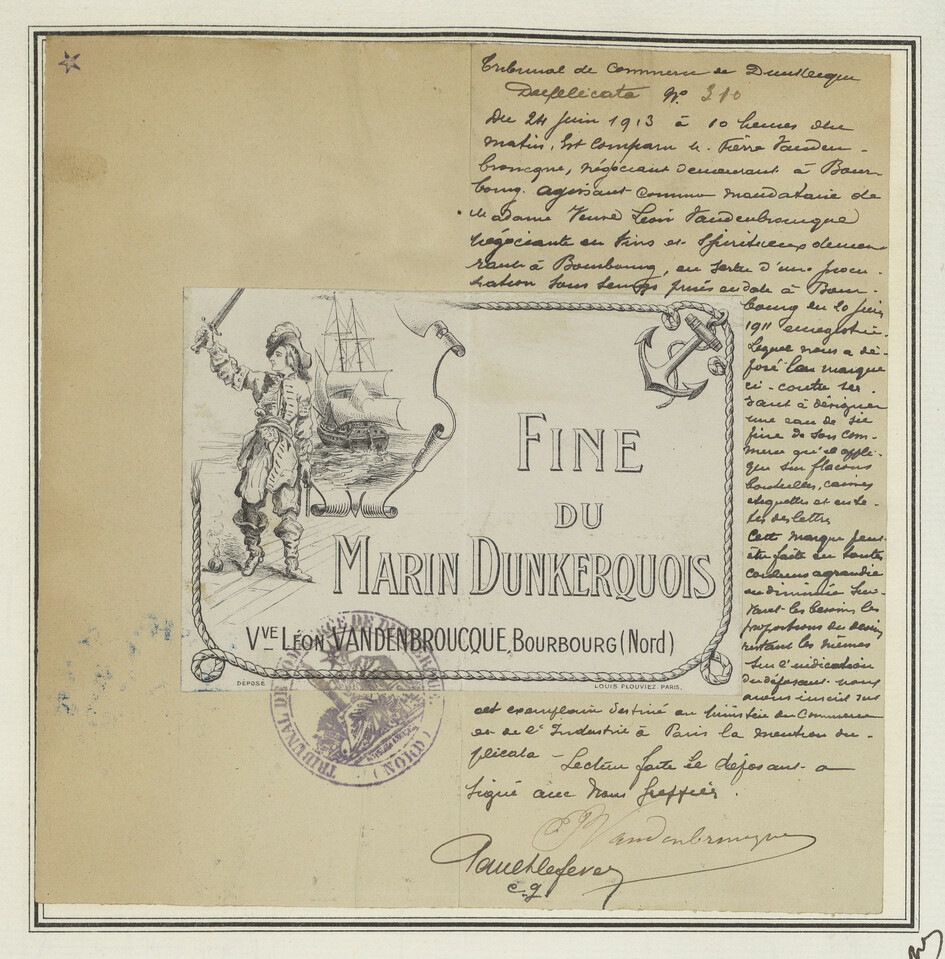 Tribunal de Commerce de Dunkerque
Duplicata N° 310
Du 24 Juin 1913 à 10 heures du
matin, est comparu M. Pierre Vanden-
broucque, négociant demeurant à Bour-
bourg, agissant comme mandataire de
Madame Veuve Léon Vandenbroucque
négociante en Vins et Spiritueux demeu-
rant à Bourbourg, en vertu d'une procu-
ration sous seings privés en date à Bour-
bourg du 20 juin
1911 enregistrée
Lequel nous a dé-
posé la marque
ci-contre ser-
vant à désigner
une eau de vie
fine de son com-
merce qu'il appli-
que sur flacons
bouteilles, caisses
étiquettes et en tê-
tes de lettres
Cette marque peut
être faite en toutes
couleurs agrandie
ou diminuée sui-
vant les besoins les
proportions du dessin
restant les mêmes
Sur l'indication
du déposant nous
avons inscrit sur
cet exemplaire destiné au Ministère du Commerce
et de l'Industrie à Paris la mention du-
plicata - Lecture faite le déposant a
signé avec Nous Greffier.
P Vandenbroucque
c.g
FINE
DU
MARIN DUNKERQUOIS
VVE LÉON VANDENBROUCQUE, BOURBOURG (Nord)
DÉPOSÉ
LOUIS PLOUVIEZ. PARIS.
TRIBUNAL DE COMMERCE DE DUNKERQUE
(NORD)